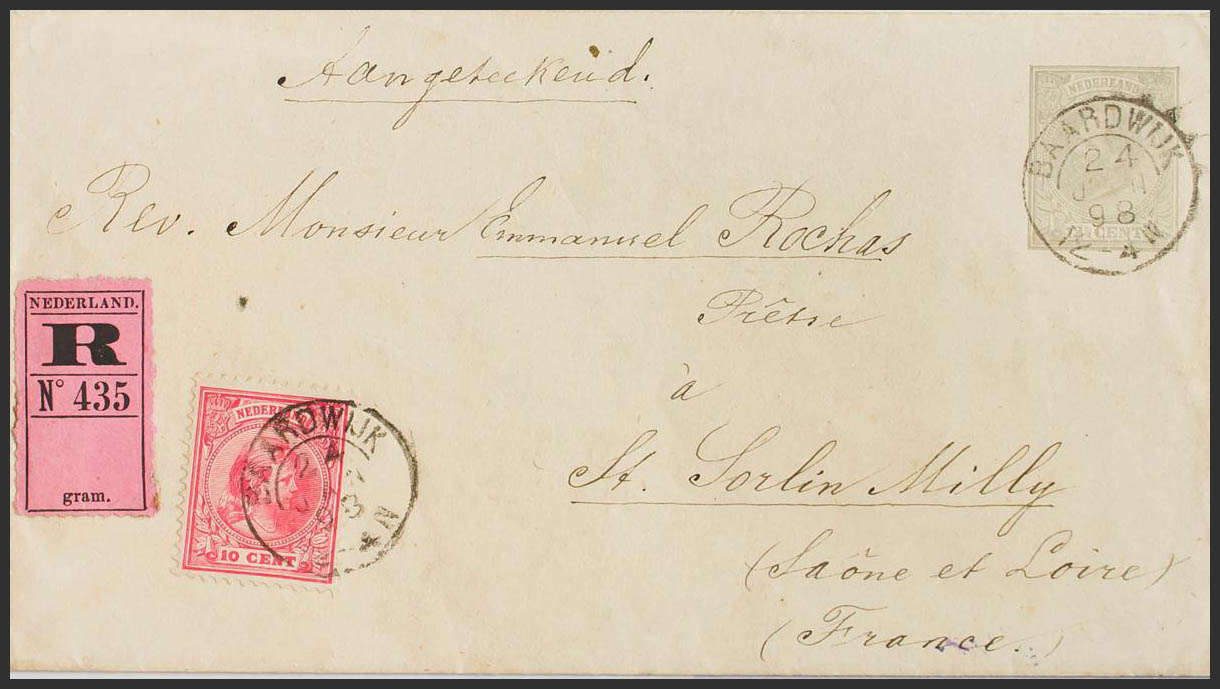 Aangeteekend.
NEDERLAND
BAARDWIJK
24
98
12-4N
CENT
Rev. Monsieur Emmanuel Rochas
Prêtre
à
St. Sorlin Milly
(Saône et Loire)
(France.)
NEDERLAND.
R
N° 435
gram.
BAARDWIJK
10 CENT